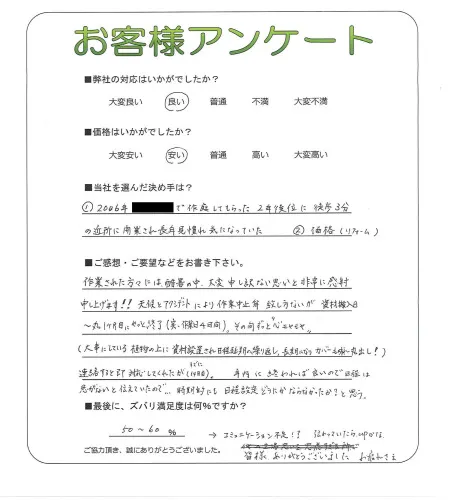 お客様アンケート
■弊社の対応はいかがでしたか?
大変良い 良い 普通 不満 大変不満
■価格はいかがでしたか?
大変安い 安い 普通 高い 大変高い
■当社を選んだ決め手は?
① 2006年 で作庭してもらった 2年後位に 徒歩3分
の近所に開業され長年見慣れ気になっていた ② 価格(リフォーム)
■ご感想・ご要望などをお書き下さい。
作業された方々には酷暑の中、大変申し訳ない思いと非常に感謝
申し上げます!! 天候とアクシデントにより作業中止等 致し方ないが 資材搬入日
〜丸1ヶ月目にやっと終了(実作業日4日間)。その間ずっと
(大事にしている植物の上に資材放置され日程延期の繰り返し、長期になり カバーも 出し!)
連絡すると即対応してくれたが 年内に終われば良いので日程は
急がないと伝えていたので… 時期的にも日程設定どうにかならなかったか?と思う。
■最後に、ズバリ満足度は何%ですか?
50〜60 % → コミュニケーション不足!? 伝わっていたらUPかな
ご協力頂き、誠にありがとうございました。 皆様 ありがとうございました お疲れさま